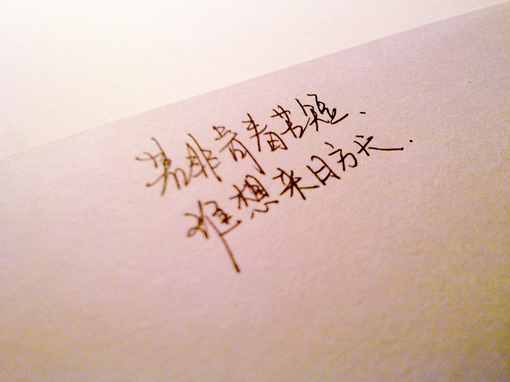 若非青春苦短.
谁想来日方长.